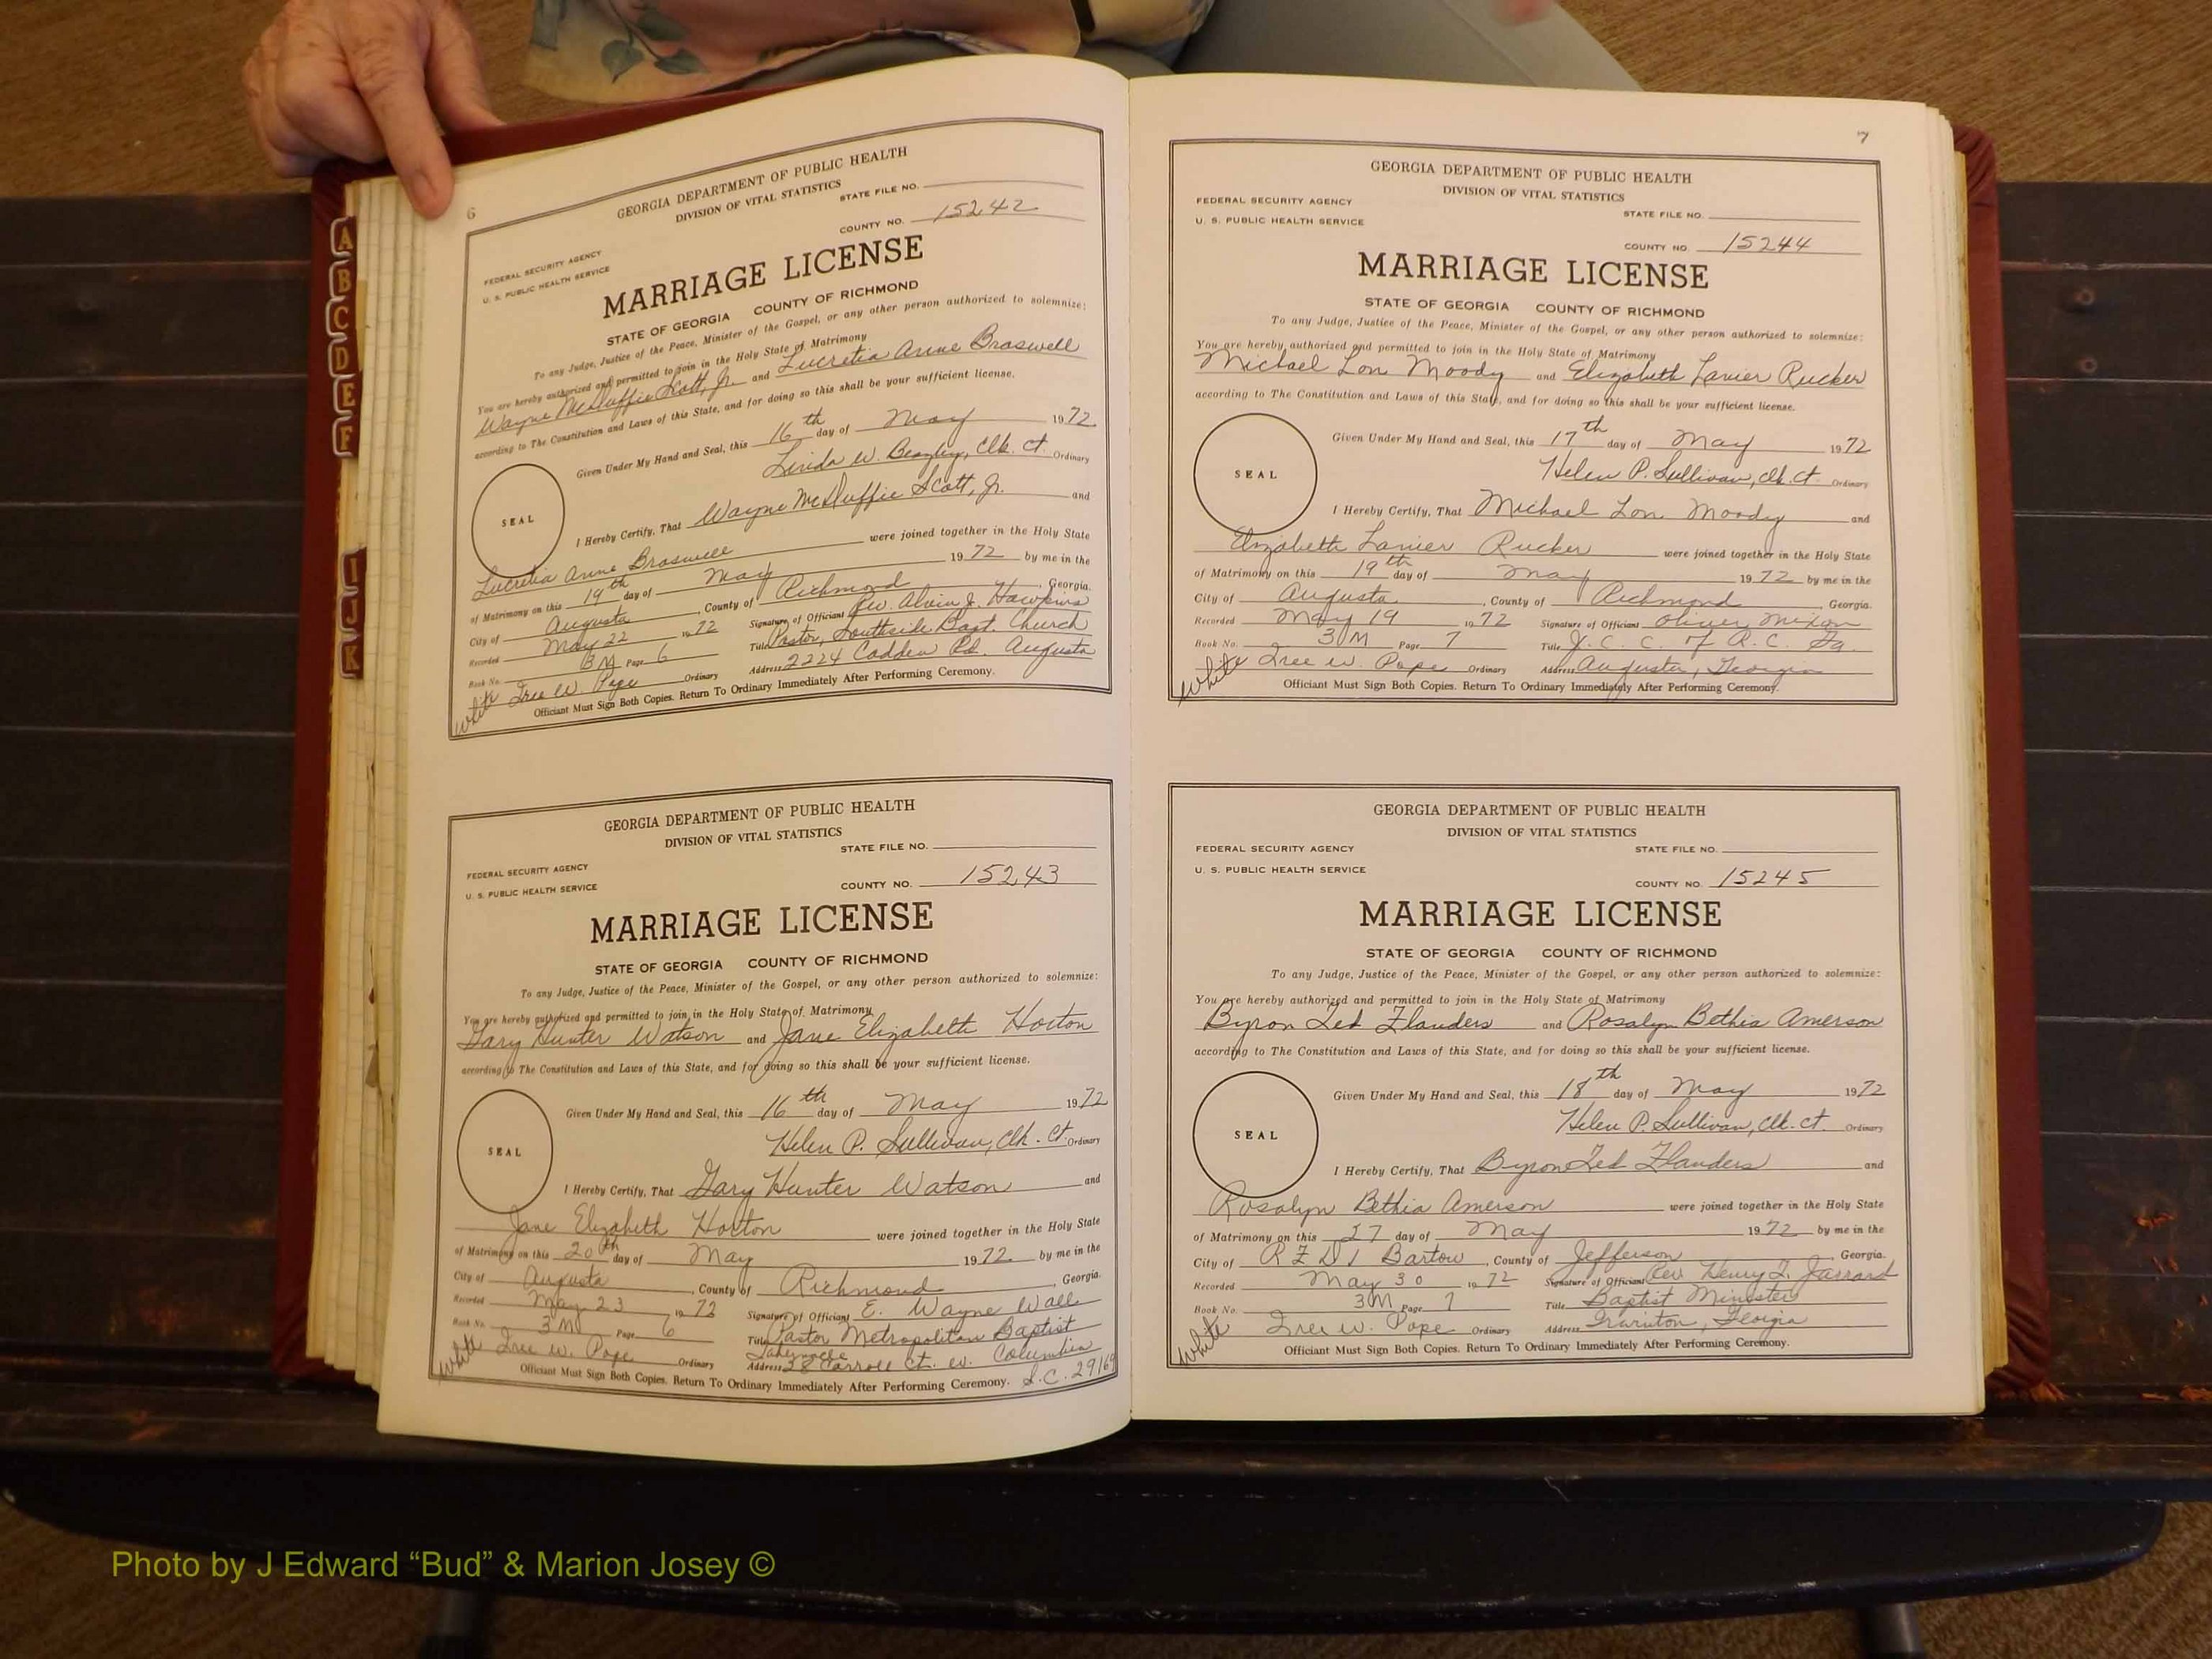 A
B
C
D
E
F
I
J
K
6
GEORGIA DEPARTMENT OF PUBLIC HEALTH
DIVISION OF VITAL STATISTICS
STATE FILE NO.
FEDERAL SECURITY AGENCY
U. S. PUBLIC HEALTH SERVICE
COUNTY NO. 15242
MARRIAGE LICENSE
STATE OF GEORGIA COUNTY OF RICHMOND
To any Judge, Justice of the Peace, Minister of the Gospel, or any other person authorized to solemnize:
You are hereby authorized and permitted to join in the Holy State of Matrimony
Wayne McDuffie Scott, Jr. and Lucretia Anne Braswell
according to The Constitution and Laws of this State, and for doing so this shall be your sufficient license.
Given Under My Hand and Seal, this 16th day of May 1972
Linda W. Beazley, Clk. Ct. Ordinary
SEAL
I Hereby Certify, That Wayne McDuffie Scott, Jr. and
Lucretia Anne Braswell were joined together in the Holy State
of Matrimony on this 19th day of May 1972 by me in the
City of Augusta, County of Richmond, Georgia.
Recorded May 22 1972 Signature of Officiant Rev. Alvin J. Hawkins
Book No. 3M Page 6 Title Pastor, Southside Bapt. Church
white Iree W. Pope Ordinary Address 2224 Cadden Rd. Augusta
Officiant Must Sign Both Copies. Return To Ordinary Immediately After Performing Ceremony.
GEORGIA DEPARTMENT OF PUBLIC HEALTH
DIVISION OF VITAL STATISTICS
STATE FILE NO.
FEDERAL SECURITY AGENCY
U. S. PUBLIC HEALTH SERVICE
COUNTY NO. 15243
MARRIAGE LICENSE
STATE OF GEORGIA COUNTY OF RICHMOND
To any Judge, Justice of the Peace, Minister of the Gospel, or any other person authorized to solemnize:
You are hereby authorized and permitted to join in the Holy State of Matrimony
Gary Hunter Watson and Jane Elizabeth Horton
according to The Constitution and Laws of this State, and for doing so this shall be your sufficient license.
Given Under My Hand and Seal, this 16th day of May 1972
Helen P. Sullivan, Clk. Ct. Ordinary
SEAL
I Hereby Certify, That Gary Hunter Watson and
Jane Elizabeth Horton were joined together in the Holy State
of Matrimony on this 20th day of May 1972 by me in the
City of Augusta, County of Richmond, Georgia.
Recorded May 23 1972 Signature of Officiant E. Wayne Wall
Book No. 3M Page 6 Title Pastor Metropolitan Baptist
Tabernacle
white Iree W. Pope Ordinary Address 38 Carroll Ct. W. Columbia
Officiant Must Sign Both Copies. Return To Ordinary Immediately After Performing Ceremony. S.C. 29169
7
GEORGIA DEPARTMENT OF PUBLIC HEALTH
DIVISION OF VITAL STATISTICS
FEDERAL SECURITY AGENCY
U. S. PUBLIC HEALTH SERVICE
STATE FILE NO.
COUNTY NO. 15244
MARRIAGE LICENSE
STATE OF GEORGIA COUNTY OF RICHMOND
To any Judge, Justice of the Peace, Minister of the Gospel, or any other person authorized to solemnize:
You are hereby authorized and permitted to join in the Holy State of Matrimony
Michael Lon Moody and Elizabeth Lanier Rucker
according to The Constitution and Laws of this State, and for doing so this shall be your sufficient license.
Given Under My Hand and Seal, this 17th day of May 1972
Helen P. Sullivan, Clk. Ct. Ordinary
SEAL
I Hereby Certify, That Michael Lon Moody and
Elizabeth Lanier Rucker were joined together in the Holy State
of Matrimony on this 19th day of May 1972 by me in the
City of Augusta, County of Richmond, Georgia.
Recorded May 19 1972 Signature of Officiant Oliver Mixon
Book No. 3M Page 7 Title J. C. C. of R. C. Ga.
white Iree W. Pope Ordinary Address Augusta, Georgia
Officiant Must Sign Both Copies. Return To Ordinary Immediately After Performing Ceremony.
GEORGIA DEPARTMENT OF PUBLIC HEALTH
DIVISION OF VITAL STATISTICS
FEDERAL SECURITY AGENCY
U. S. PUBLIC HEALTH SERVICE
STATE FILE NO.
COUNTY NO. 15245
MARRIAGE LICENSE
STATE OF GEORGIA COUNTY OF RICHMOND
To any Judge, Justice of the Peace, Minister of the Gospel, or any other person authorized to solemnize:
You are hereby authorized and permitted to join in the Holy State of Matrimony
Byron Ted Flanders and Rosalyn Bethia Amerson
according to The Constitution and Laws of this State, and for doing so this shall be your sufficient license.
Given Under My Hand and Seal, this 18th day of May 1972
Helen P. Sullivan, Clk. Ct. Ordinary
SEAL
I Hereby Certify, That Byron Ted Flanders and
Rosalyn Bethia Amerson were joined together in the Holy State
of Matrimony on this 27 day of May 1972 by me in the
City of R F D 1 Bartow, County of Jefferson, Georgia.
Recorded May 30 1972 Signature of Officiant Rev. Henry T. Jarrard
Book No. 3M Page 7 Title Baptist Minister
white Iree W. Pope Ordinary Address Irwinton, Georgia
Officiant Must Sign Both Copies. Return To Ordinary Immediately After Performing Ceremony.
Photo by J Edward “Bud” & Marion Josey ©